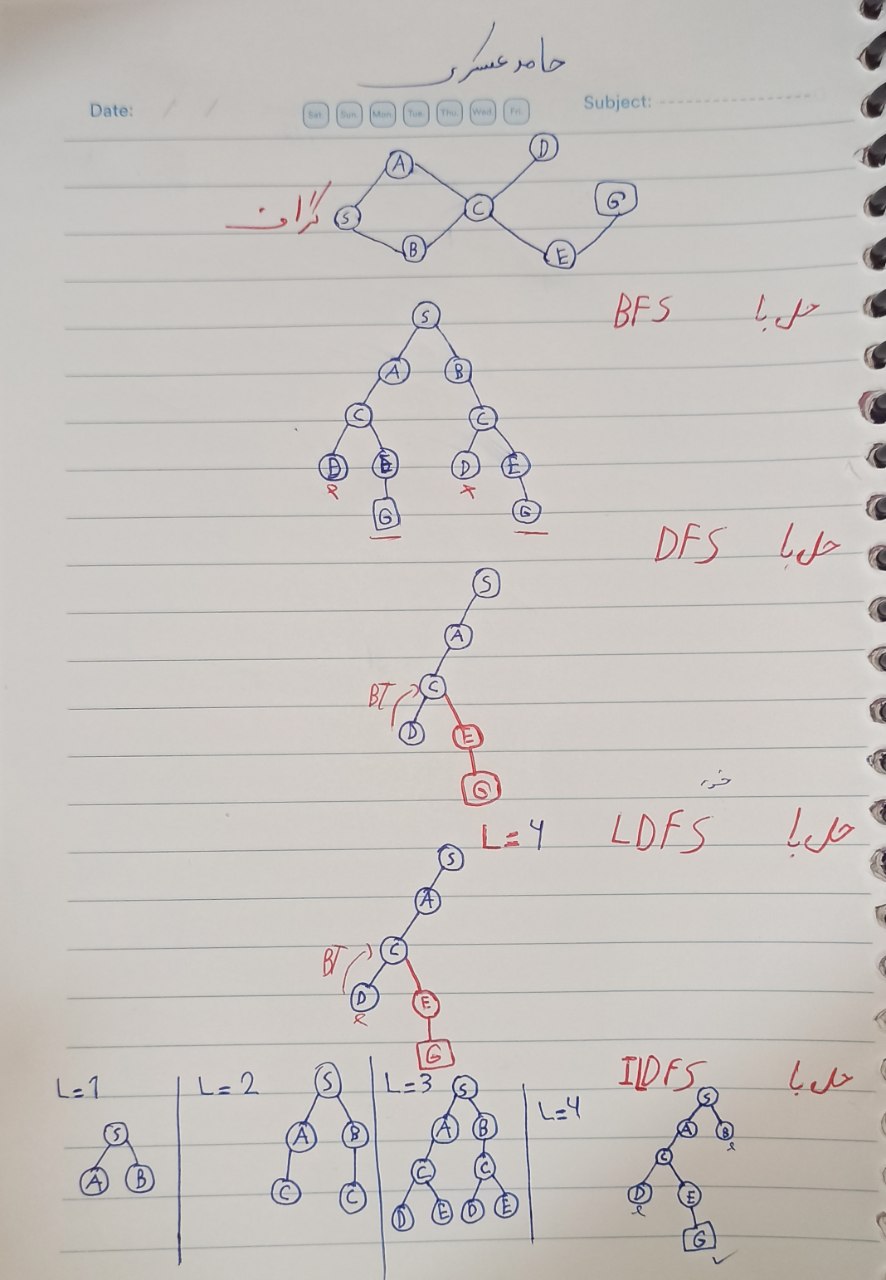 حامد عسکری
Date: / / Sat. Sun. Mon. Tue. Thu. Wed. Fri. Subject:
گراف
S A B C D E G
حل با BFS
S
A B
C C
D E D E
G G
حل با DFS
S
A
BT C
D E
G
حل با LDFS L=4
S
A
BT C
D E
G
حل با ILDFS
L=1
S
A B
L=2
S
A B
C C
L=3
S
A B
C C
D E D E
L=4
S
A B
C
D E
G